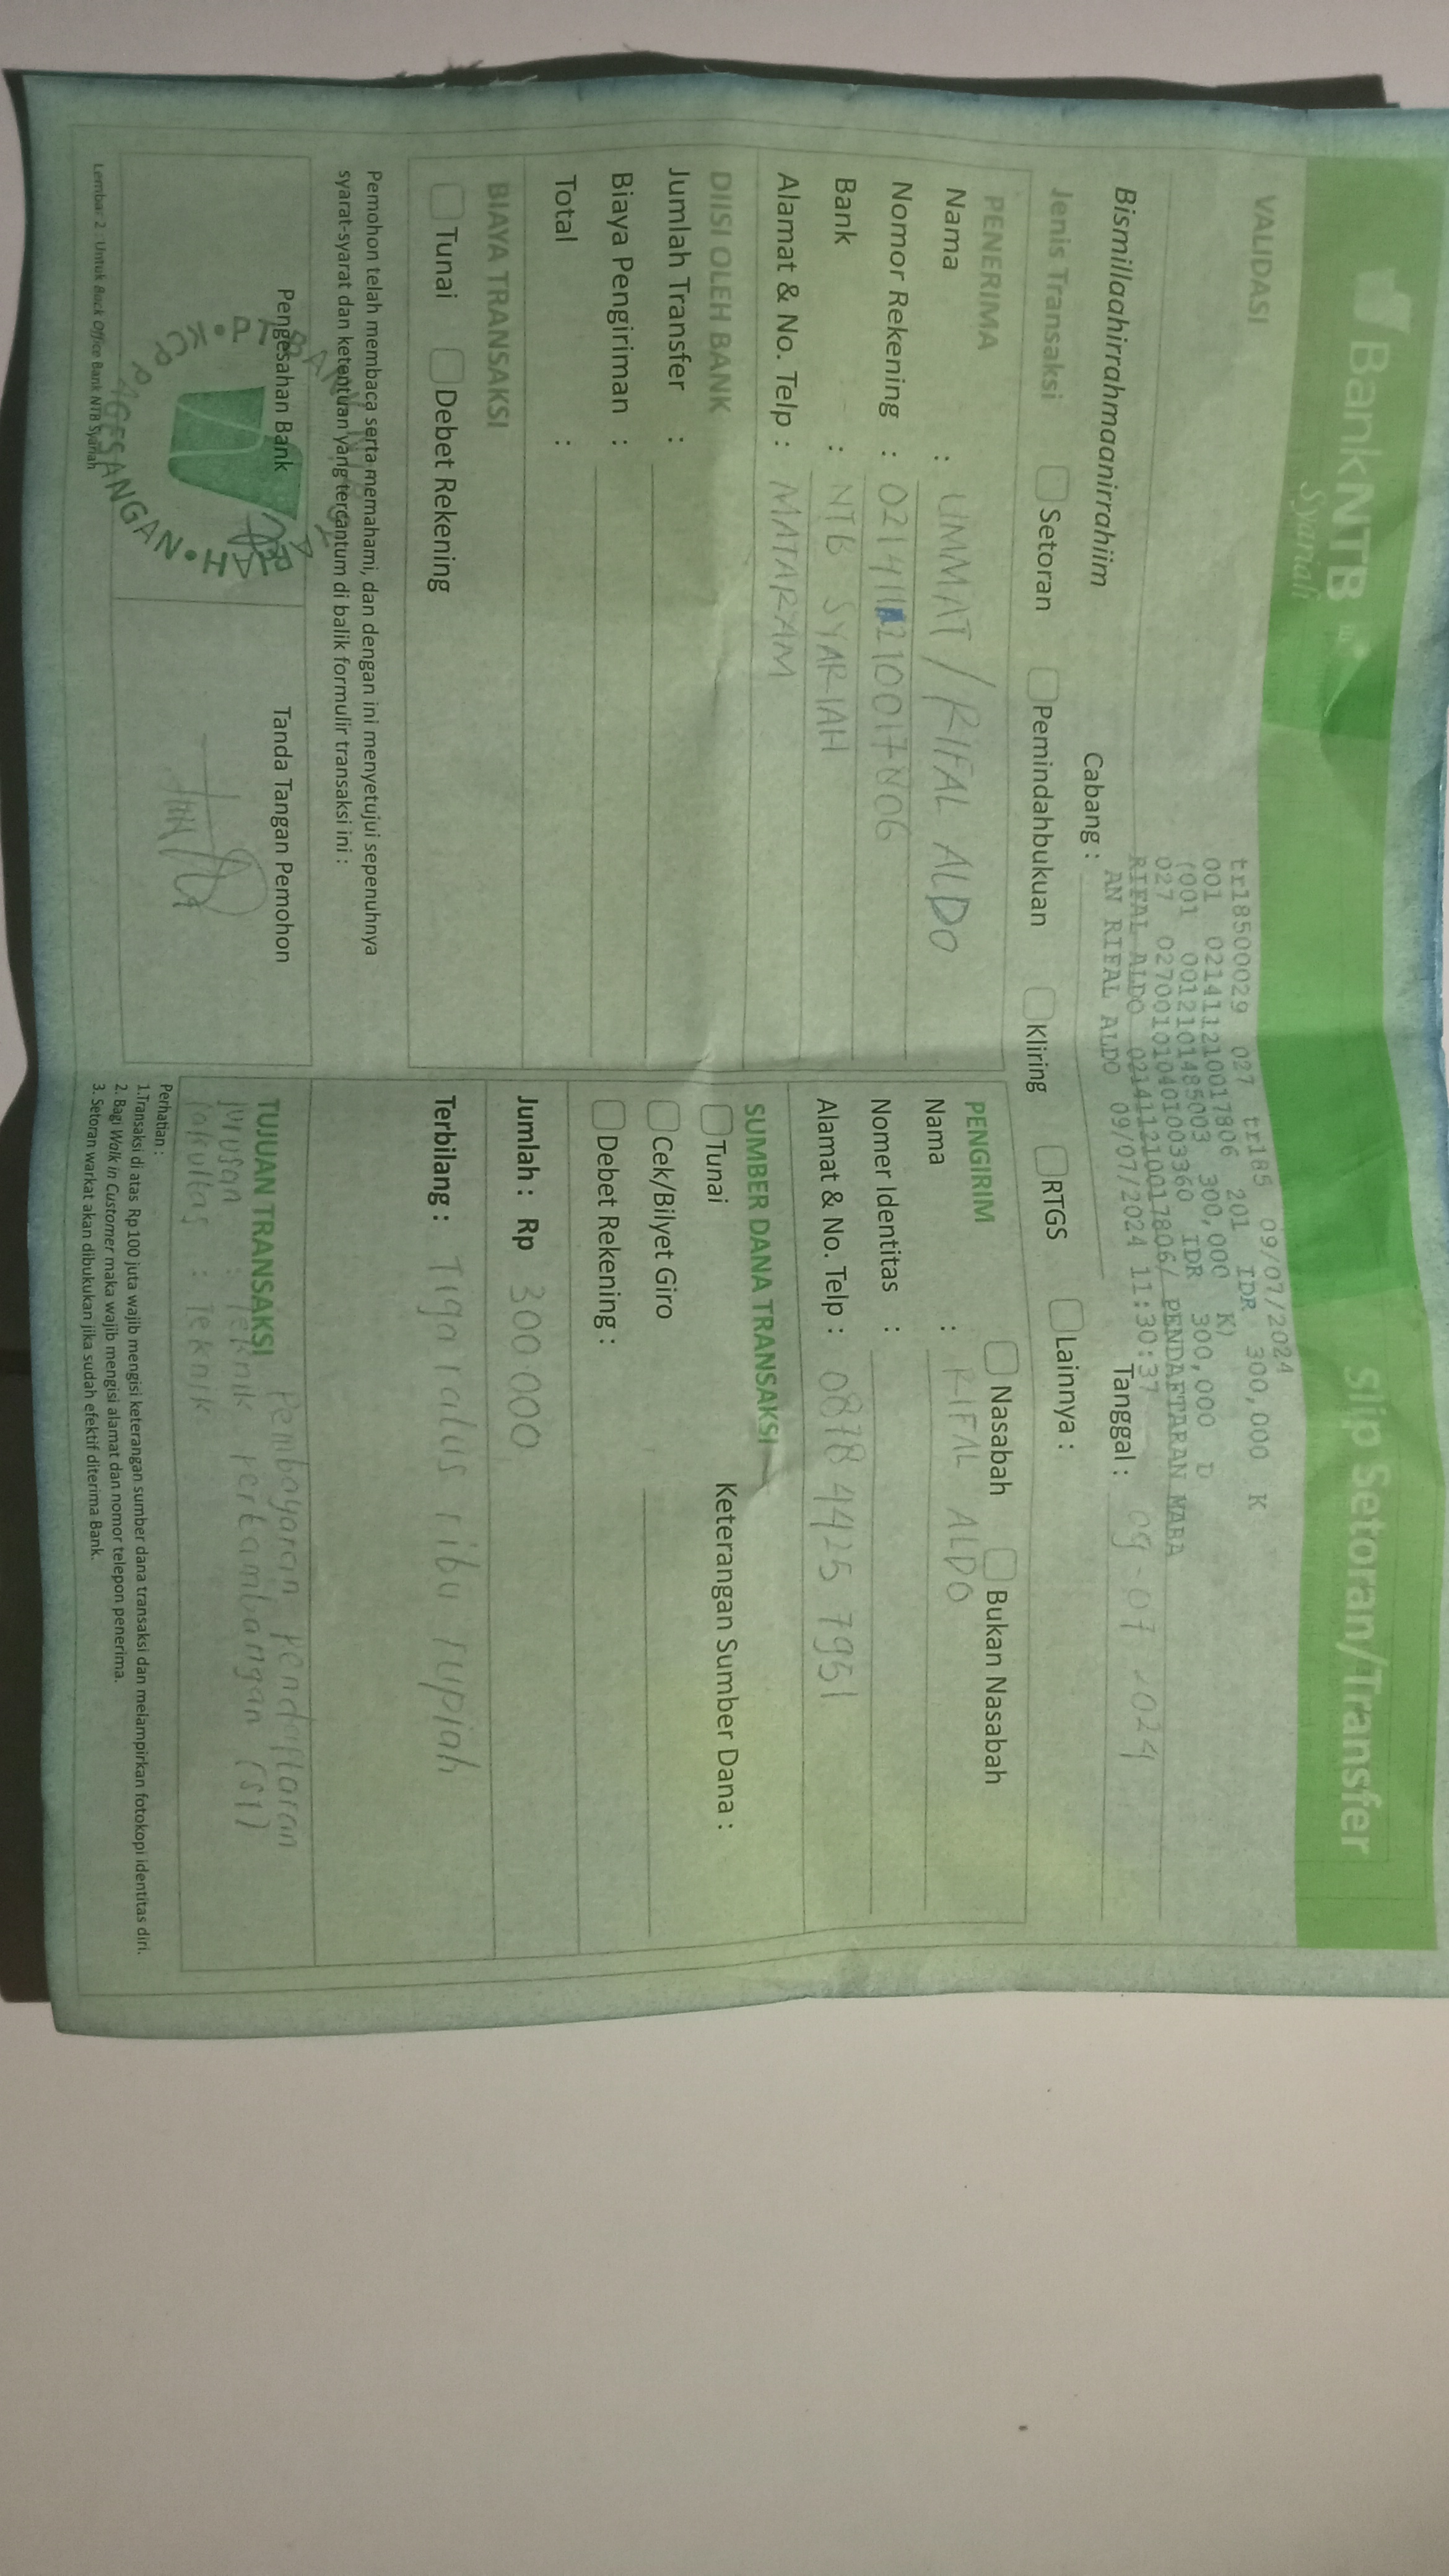 BankNTB
Syariah
Slip Setoran/Transfer
VALIDASI
tr18500029 027 tr185 09/07/2024
001 021411210017806 201 IDR 300,000 K
(001 0012101485003 300,000 K)
027 027001010401003360 IDR 300,000 D
RIFAL ALDO 021411210017806/ PENDAFTARAN MABA
AN RIFAL ALDO 09/07/2024 11:30:37
Bismillaahirrahmaanirrahiim
Cabang :
Tanggal : 09-07-2024
Jenis Transaksi
Setoran
Pemindahbukuan
Kliring
RTGS
Lainnya :
PENERIMA
Nama : UMMAT / RIFAL ALDO
Nomor Rekening : 021411210017806
Bank : NTB SYARIAH
Alamat & No. Telp : MATARAM
PENGIRIM
Nasabah
Bukan Nasabah
Nama : RIFAL ALDO
Nomer Identitas :
Alamat & No. Telp : 0878 4425 7951
DIISI OLEH BANK
Jumlah Transfer :
Biaya Pengiriman :
Total :
SUMBER DANA TRANSAKSI
Tunai
Keterangan Sumber Dana :
Cek/Bilyet Giro
Debet Rekening :
BIAYA TRANSAKSI
Tunai
Debet Rekening
Jumlah : Rp 300.000
Terbilang : Tiga ratus ribu rupiah
Pemohon telah membaca serta memahami, dan dengan ini menyetujui sepenuhnya
syarat-syarat dan ketentuan yang tercantum di balik formulir transaksi ini :
Pengesahan Bank
Tanda Tangan Pemohon
PAGESANGAN
TUJUAN TRANSAKSI
Pembayaran Pendaftaran
jurusan : Teknik Pertambangan (S1)
fakultas : Teknik
Perhatian :
1.Transaksi di atas Rp 100 juta wajib mengisi keterangan sumber dana transaksi dan melampirkan fotokopi identitas diri.
2. Bagi Walk in Customer maka wajib mengisi alamat dan nomor telepon penerima.
3. Setoran warkat akan dibukukan jika sudah efektif diterima Bank.
Lembar 2 : Untuk Back Office Bank NTB Syariah